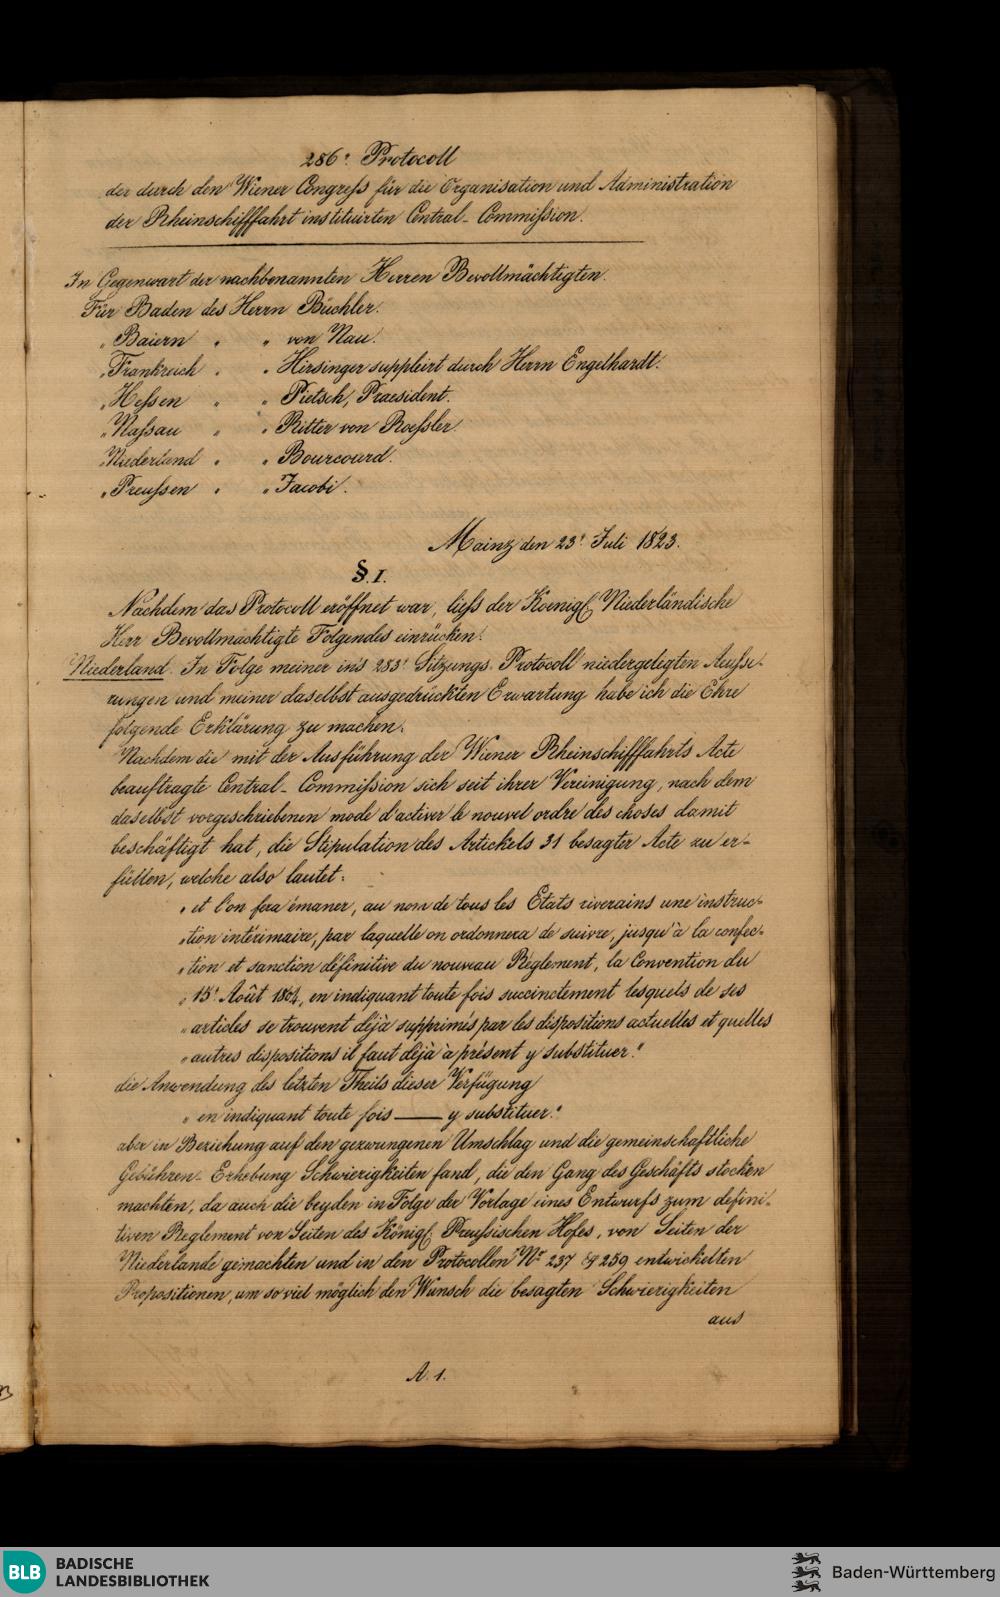 286s Protocoll
der durch den Wiener Congreß für die Organisation und Administration
der Rheinschifffahrt instituirten Central-Commißion.
In Gegenwart der nachbenannten Herren Bevollmächtigten.
Für Baden des Herrn Büchler.
" Baiern " " von Nau.
" Frankreich " " Hirsinger suppleirt durch Herrn Engelhardt.
" Heßen " " Pietsch, Praesident.
" Naßau " " Ritter von Roeßler.
" Niederland " " Bourcourd.
" Preußen " " Jacobi.
Mainz den 23s Juli 1823.
§. I.
Nachdem das Protocoll eröffnet war, ließ der Koenigl. Niederländische
Herr Bevollmächtigte Folgendes einrücken.
Niederland. In Folge meiner in's 283s Sitzungs-Protocoll niedergelegten Aeuße-
rungen und meiner daselbst ausgedrückten Erwartung habe ich die Ehre
folgende Erklärung zu machen.
Nachdem die mit der Ausführung der Wiener Rheinschifffahrts Acte
beauftragte Central-Commißion sich seit ihrer Vereinigung, nach dem
daselbst vorgeschriebenen mode d'activer le nouvel ordre des choses damit
beschäftigt hat, die Stipulation des Artickels 31 besagter Acte zu er-
füllen, welche also lautet:
" et l'on fera émaner, au nom de tous les Etats riverains une instruc-
" tion intérimaire, par laquelle on ordonnera de suivre, jusqu'à la confec-
" tion et sanction définitive du nouveau Réglement, la Convention du
" 15s Août 1804, en indiquant toute fois succinctement lesquels de ses
" articles se trouvent déjà supprimés par les dispositions actuelles et quelles
" autres dispositions il faut déjà à présent y substituer."
die Anwendung des letzten Theils dieser Verfügung
" en indiquant toute fois —— y substituer."
aber in Beziehung auf den gezwungenen Umschlag und die gemeinschaftliche
Gebühren-Erhebung Schwierigkeiten fand, die den Gang des Geschäfts stocken
machten, da auch die beyden in Folge der Vorlage eines Entwurfs zum defini-
tiven Reglement von Seiten des Königl. Preußischen Hofes, von Seiten der
Niederlande gemachten und in den Protocollen Nr 237 & 259 entwickelten
Propositionen, um so viel möglich den Wunsch die besagten Schwierigkeiten
aus
A. 1.
BLB BADISCHE
LANDESBIBLIOTHEK
Baden-Württemberg